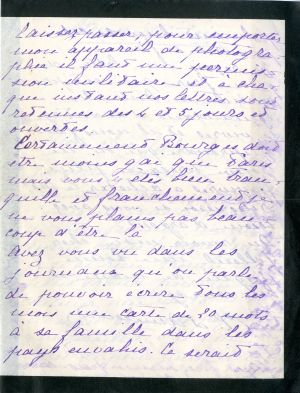 laissez passer, pour emporter
mon appareil de photogra
phie il faut une permis
sion militaire et à cha
que instant nos lettres sont
retenues des 4 et 5 jours et
ouvertes.
Certainement Bourges doit
être moins gai que Paris
mais vous y êtes bien tran
quille et franchement je
ne vous plains pas beau
coup d'être là
Avez vous vu dans les
journaux qu'on parle
de pouvoir écrire tous les
mois une carte de 20 mots
à sa famille dans les
pays envahis. Ce serait